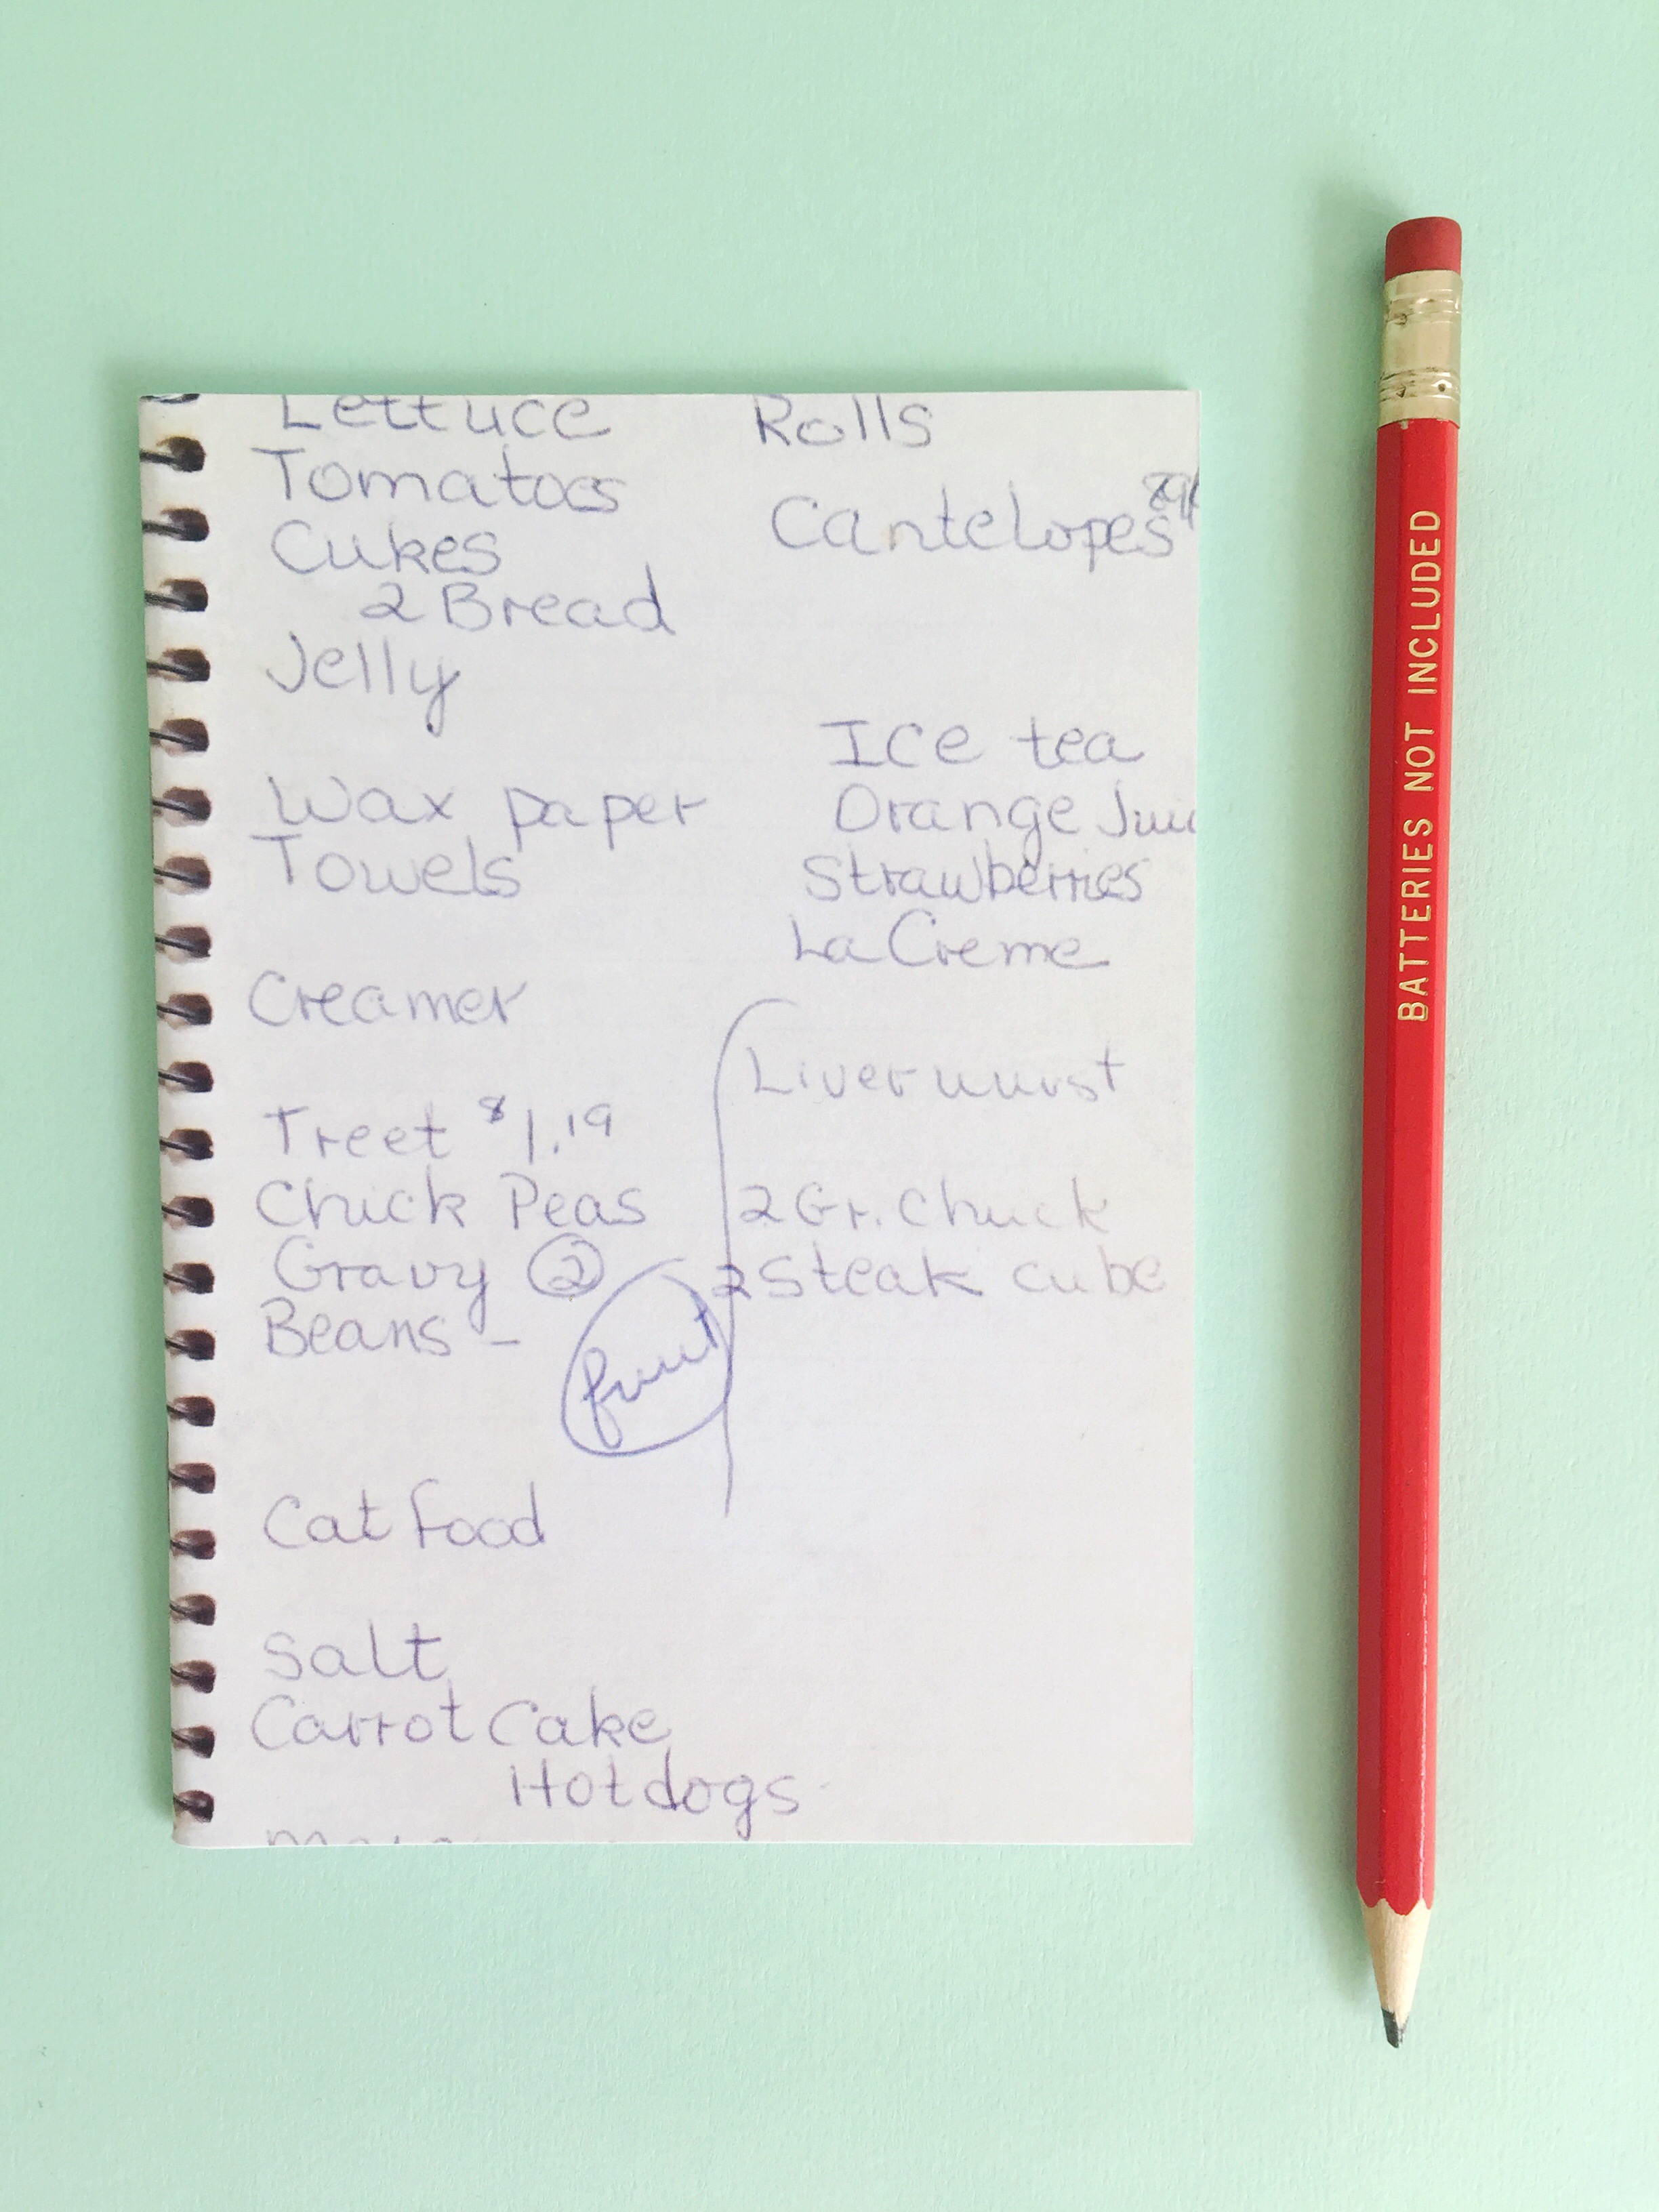 Lettuce
Tomatoes
Cukes
2 Bread
Jelly
Wax paper
Towels
Creamer
Treet $1.19
Chick Peas
Gravy 2
Beans -
fruit
Cat food
Salt
Carrot Cake
Hotdogs
Rolls
Cantelopes
Ice tea
Orange Juic
Strawberries
La Creme
Liverwurst
2 Gr. Chuck
2 Steak cube
BATTERIES NOT INCLUDED